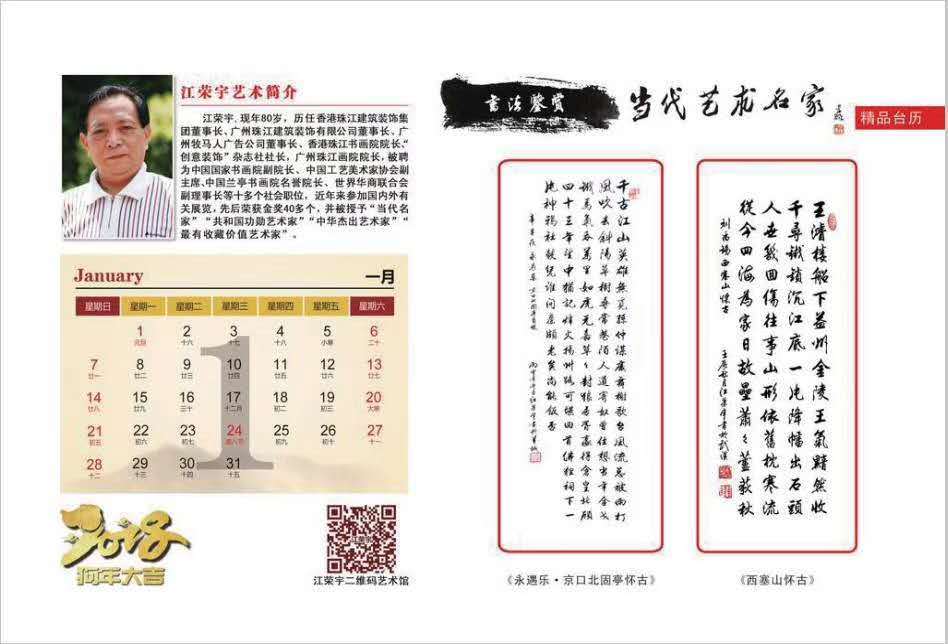 江荣宇艺术简介
江荣宇,现年80岁，历任香港珠江建筑装饰集
团董事长、广州珠江建筑装饰有限公司董事长、广
州牧马人广告公司董事长、香港珠江书画院院长、“
创意装饰”杂志社社长，广州珠江画院院长，被聘
为中国国家书画院副院长、中国工艺美术家协会副
主席、中国兰亭书画院名誉院长、世界华商联合会
副理事长等十多个社会职位，近年来参加国内外有
关展览，先后荣获金奖40多个，并被授予“当代名
家”“共和国功勋艺术家”“中华杰出艺术家”“
最有收藏价值艺术家”。
January 一月
星期日 星期一 星期二 星期三 星期四 星期五 星期六
1 2 3 4 5 6
元旦 十六 十七 十八 小寒 二十
7 8 9 10 11 12 13
廿一 廿二 廿三 廿四 廿五 廿六 廿七
14 15 16 17 18 19 20
廿八 廿九 三十 十二月 初二 初三 大寒
21 22 23 24 25 26 27
初五 初六 初七 腊八节 初九 初十 十一
28 29 30 31
十二 十三 十四 十五
1
2018
狗年大吉
江荣宇
江荣宇二维码艺术馆
书法鉴赏
当代艺术名家
精品台历
千古江山英雄無覓孫仲謀處舞榭歌台風流总被雨打
風吹去斜陽草樹尋常巷陌人道寄奴曾住想当年金戈
铁馬氣吞萬里如虎元嘉草草封狼居胥赢得倉皇北顾
四十三年望中猶記烽火揚州路可堪回首佛狸祠下一
片神鸦社鼓凭谁问廉颇老矣尚能饭否
《永遇乐·京口北固亭怀古》
王濬樓船下益州金陵王氣黯然收
千尋鐵鎖沉江底一片降幡出石頭
人世幾回傷往事山形依舊枕寒流
從今四海為家日故壘蕭々蘆荻秋
刘禹锡西塞山怀古
《西塞山怀古》